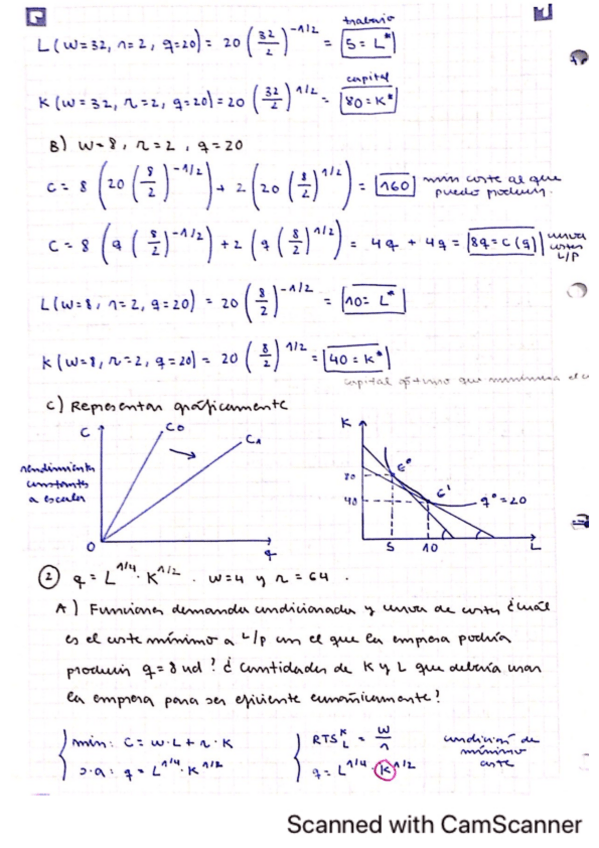 trabajo
L(w=32, r=2, q=20) = 20 (32/2)^-1/2 = 5 = L*
capital
K(w=32, r=2, q=20) = 20 (32/2)^1/2 = 80 = K*
B) w=8, r=2, q=20
C = 8 (20 (8/2)^-1/2) + 2 (20 (8/2)^1/2) = 160 min coste al que puedo producir.
C = 8 (q (8/2)^-1/2) + 2 (q (8/2)^1/2) = 4q + 4q = 8q = C(q) curva costes L/P
L(w=8, r=2, q=20) = 20 (8/2)^-1/2 = 10 = L*
K(w=8, r=2, q=20) = 20 (8/2)^1/2 = 40 = K*
capital óptimo que minimiza el c
C) Representar gráficamente
C C0 C1
rendimientos constantes a escala
0 q
K
80 E0
40 E1 q0=20
5 10 L
2 q = L^1/4 · K^1/2 . w=4 y r=64.
A) Funciones demandas condicionadas y curva de costes ¿cuál
es el coste mínimo a L/p con el que la empresa podría
producir q=8 ud? ¿cantidades de K y L que debería usar
la empresa para ser eficiente económicamente?
min: C = w·L + r·K
s.a: q = L^1/4 · K^1/2
RTS^K_L = w/r condición de mínimo coste
q = L^1/4 · K^1/2
Scanned with CamScanner